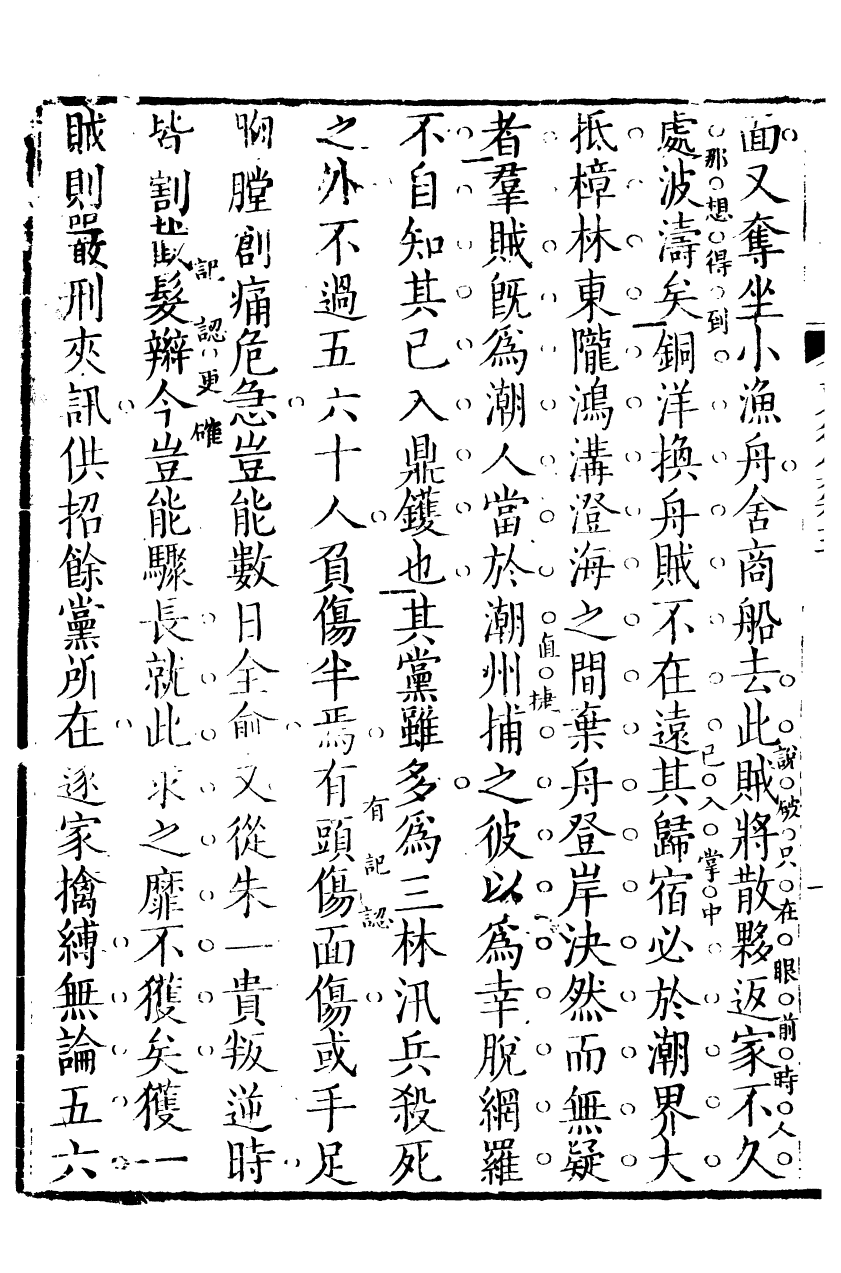 面又奪坐小漁舟舍商船去此賊將散夥返家不久
說破只在眼前時人
那想得到
處波濤矣銅洋換舟賊不在遠其歸宿必於潮界大
已入掌中
抵樟林東隴鴻溝澄海之間棄舟登岸決然而無疑
直捷
者羣賊旣爲潮人當於潮州捕之彼以爲幸脫網羅
不自知其已入鼎鑊也其黨雖多爲三林汛兵殺死
有記認
之外不過五六十人負傷半焉有頭傷面傷或手足
胸膛創痛危急豈能數日全俞又從朱一貴叛逆時
記認更確
皆割截髮辮今豈能驟長就此求之靡不獲矣獲一
賊則嚴刑夾訊供招餘黨所在逐家擒縛無論五六